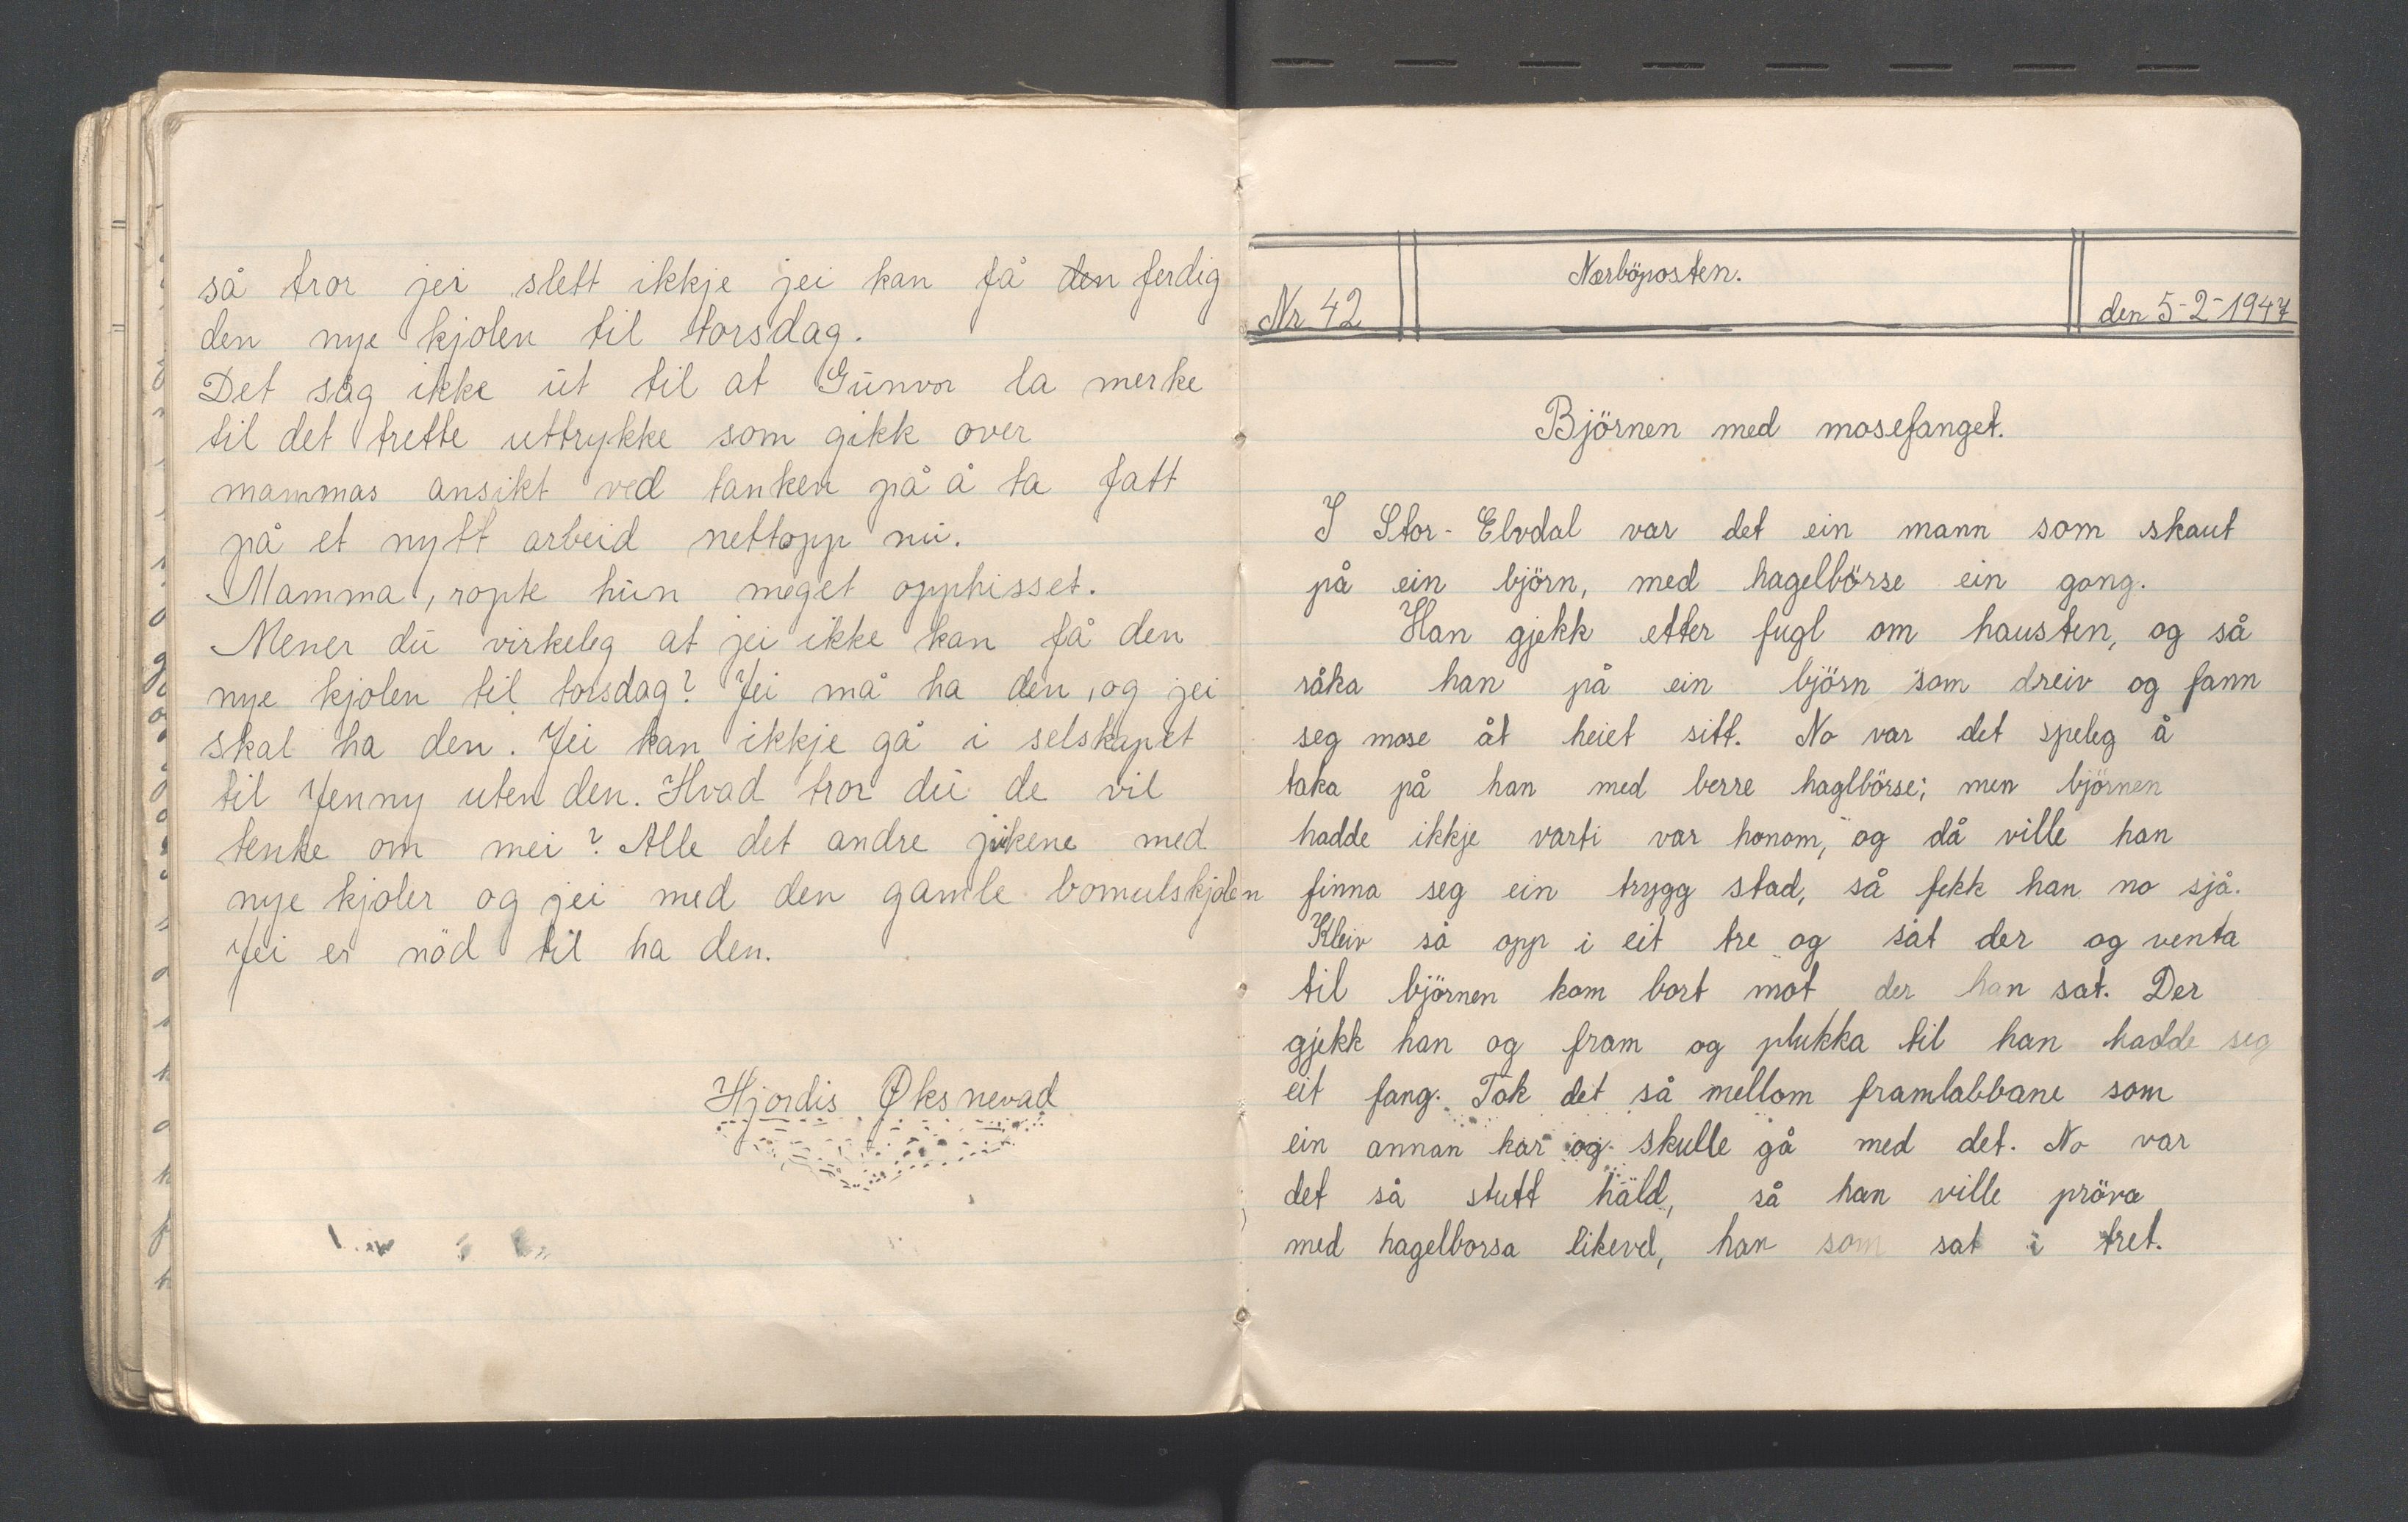 så tror jei slett ikkje jei kan få den ferdig
den nye kjolen til torsdag.
Det såg ikke ut til at Gunvor la merke
til det trette uttrykke som gikk over
mammas ansikt ved tanken på å ta fatt
på et nytt arbeid nettopp nu.
Mamma, ropte hun meget opphisset.
Mener du virkeleg at jei ikke kan få den
nye kjolen til torsdag? Jei må ha den, og jei
skal ha den. Jei kan ikkje gå i selskapet
til Jenny uten den. Hvad tror du de vil
tenke om mei? Alle det andre jikene med
nye kjoler og jei med den gamle bomulskjolen
Jei er nöd til ha den.
Hjordis Øksnevad
Nr 42
Nærböposten.
den 5-2-1947
Björnen med mosefanget.
I Stor-Elvdal var det ein mann som skaut
på ein björn, med hagelbörse ein gong.
Han gjekk etter fugl om hausten, og så
råka han på ein björn som dreiv og fann
seg mose åt heiet sitt. No var det speleg å
taka på han med berre haglbörse; men björnen
hadde ikkje varti var honom, og då ville han
finna seg ein trygg stad, så fekk han no sjå.
Kleiv så opp i eit tre og sat der og venta
til björnen kom bort mot der han sat. Der
gjekk han og fram og plukka til han hadde seg
eit fang. Tok det så mellom framlabbane som
ein annan kar og skulle gå med det. No var
det så stutt häld, så han ville pröva
med hagelborsa likevel, han som sat i tret.